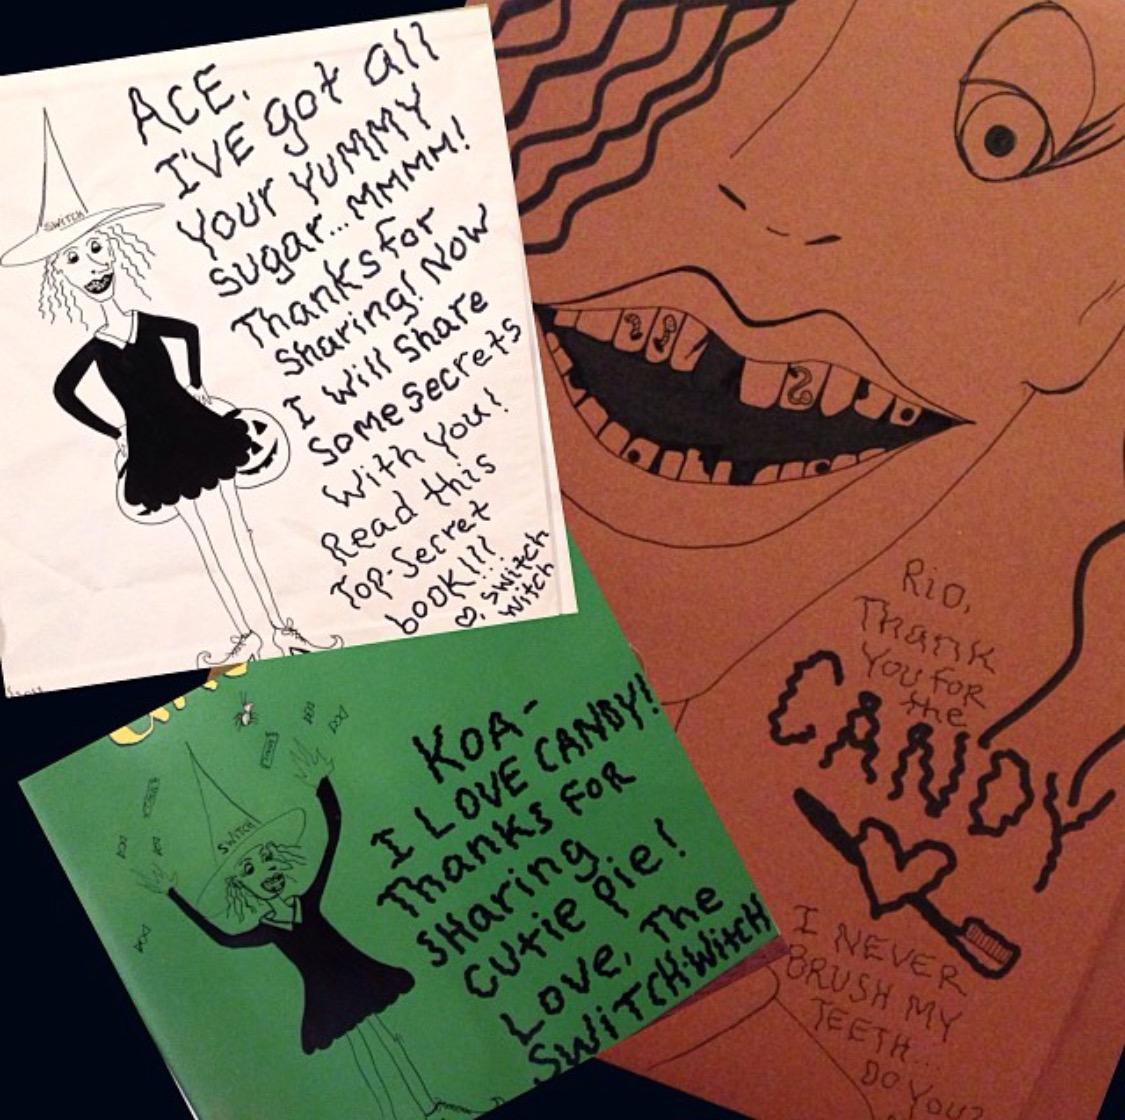 ACE,
I'VE got all
your YUMMY
sugar...MMMM!
Thanks for
sharing! Now
I will share
some secrets
with you!
Read this
Top-Secret
book!!!
♡, switch
witch
SWITCH
KOA-
I LOVE CANDY!
Thanks FOR
SHaring
cutie pie!
Love, The
SWiTCH-WitcH
SWITCH
Rio,
Thank
You for
the
CANDY
I NEVER
BRUSH MY
TEETH...
DO YOU?